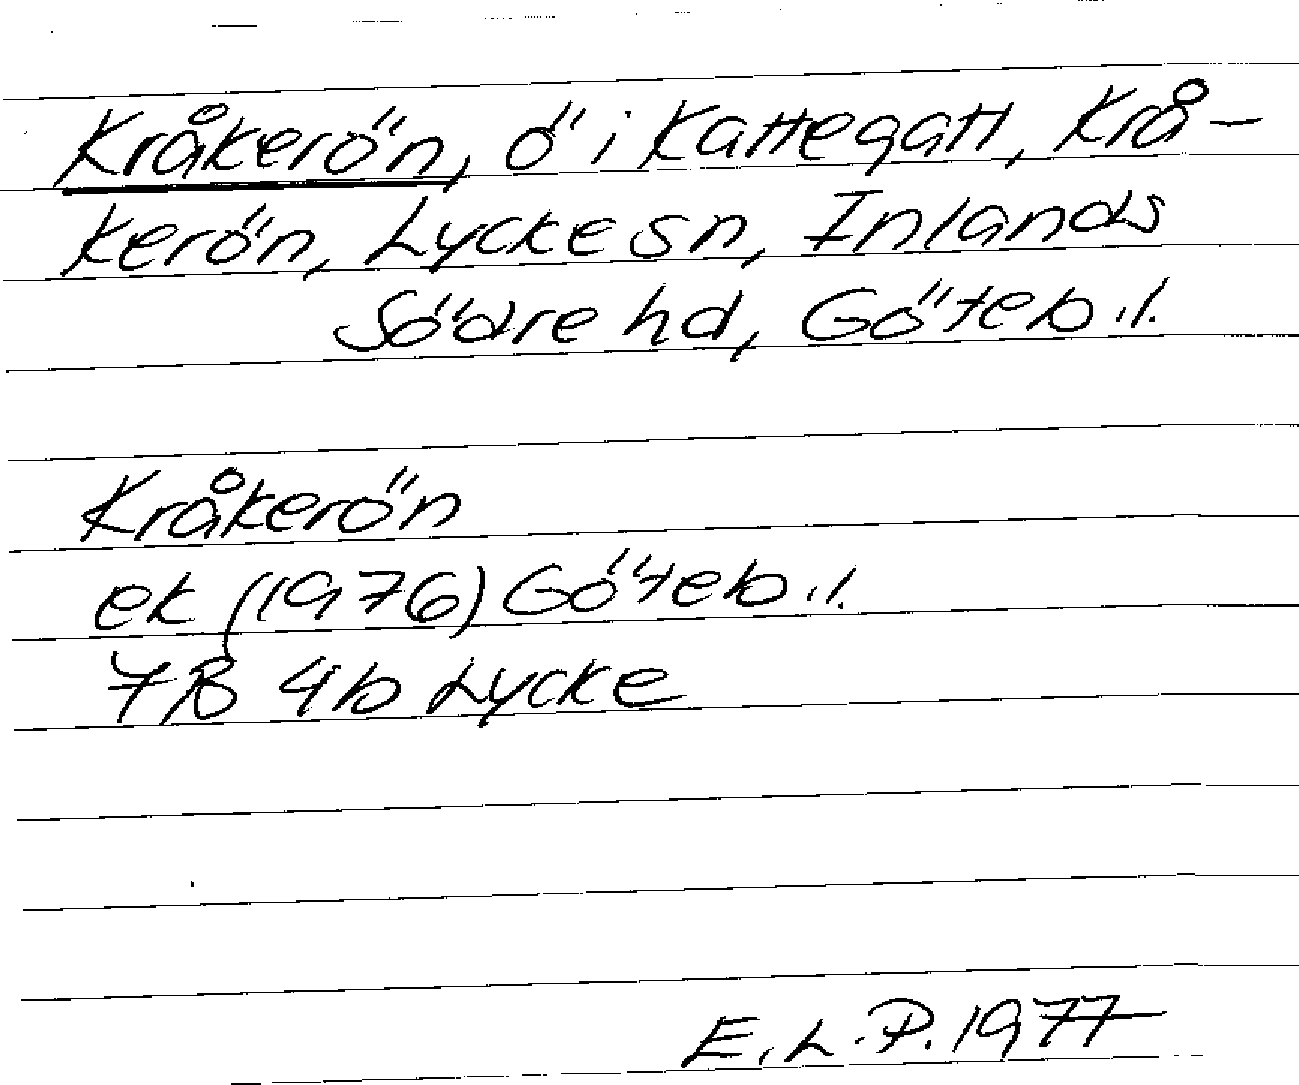 Kråkerön, ö i Kattegatt, Krå-
kerön, Lycke sn, Inlands
Södre hd, Göteb.l.
Kråkerön
ek (1976) Göteb.l.
7B 4b Lycke
E.L.P. 1977